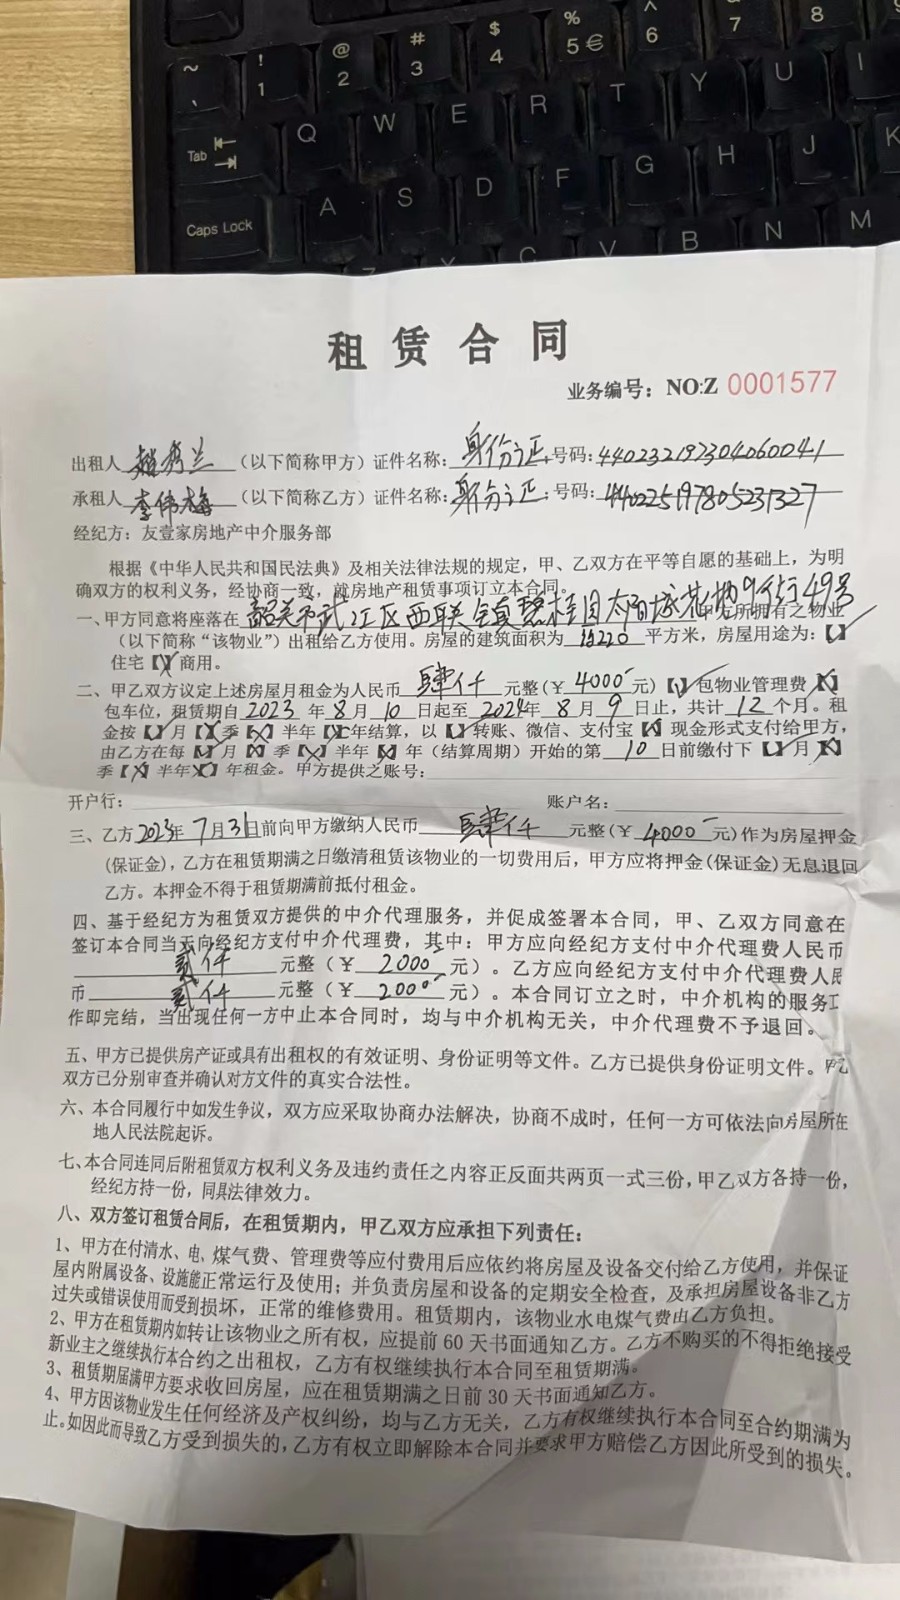 ~ ! @ # $ % ^
` 1 2 3 4 5 € 6 7 8
Tab Q W E R T Y U I
Caps Lock A S D F G H J K
C V B N M
租赁合同
业务编号：NO:Z 0001577
出租人 赵秀兰 （以下简称甲方）证件名称：身份证 号码：440232197304060041
承租人 李伟梅 （以下简称乙方）证件名称：身份证 号码：440225197805231327
经纪方：友壹家房地产中介服务部
根据《中华人民共和国民法典》及相关法律法规的规定，甲、乙双方在平等自愿的基础上，为明
确双方的权利义务，经协商一致，就房地产租赁事项订立本合同。
一、甲方同意将座落在 韶关市武江区西联镇碧桂园太阳城花 9 街 49号 所拥有之物业
（以下简称“该物业”）出租给乙方使用。房屋的建筑面积为 220 平方米，房屋用途为：【】
住宅【】商用。
二、甲乙双方议定上述房屋月租金为人民币 肆仟 元整（¥ 4000 元）【】包物业管理费【】
包车位，租赁期自 2023 年 8 月 10 日起至 2024 年 8 月 9 日止，共计 12 个月。租
金按【】月【】季【】半年【】年结算，以【】转账、微信、支付宝【】现金形式支付给甲方，
由乙方在每【】月【】季【】半年【】年（结算周期）开始的第 10 日前缴付下【】月【】
季【】半年【】年租金。甲方提供之账号：
开户行： 账户名：
三、乙方 2023年 7月31日前向甲方缴纳人民币 肆仟 元整（¥ 4000 元）作为房屋押金
(保证金)，乙方在租赁期满之日缴清租赁该物业的一切费用后，甲方应将押金(保证金)无息退回
乙方。本押金不得于租赁期满前抵付租金。
四、基于经纪方为租赁双方提供的中介代理服务，并促成签署本合同，甲、乙双方同意在
签订本合同当天向经纪方支付中介代理费，其中：甲方应向经纪方支付中介代理费人民币
贰仟 元整（¥ 2000 元）。乙方应向经纪方支付中介代理费人民
币 贰仟 元整（¥ 2000 元）。本合同订立之时，中介机构的服务工
作即完结，当出现任何一方中止本合同时，均与中介机构无关，中介代理费不予退回。
五、甲方已提供房产证或具有出租权的有效证明、身份证明等文件。乙方已提供身份证明文件。甲乙
双方已分别审查并确认对方文件的真实合法性。
六、本合同履行中如发生争议，双方应采取协商办法解决，协商不成时，任何一方可依法向房屋所在
地人民法院起诉。
七、本合同连同后附租赁双方权利义务及违约责任之内容正反面共两页一式三份，甲乙双方各持一份，
经纪方持一份，同具法律效力。
八、双方签订租赁合同后，在租赁期内，甲乙双方应承担下列责任：
1、甲方在付清水、电、煤气费、管理费等应付费用后应依约将房屋及设备交付给乙方使用，并保证
屋内附属设备、设施能正常运行及使用；并负责房屋和设备的定期安全检查，及承担房屋设备非乙方
过失或错误使用而受到损坏，正常的维修费用。租赁期内，该物业水电煤气费由乙方负担。
2、甲方在租赁期内如转让该物业之所有权，应提前 60 天书面通知乙方。乙方不购买的不得拒绝接受
新业主之继续执行本合约之出租权，乙方有权继续执行本合同至租赁期满。
3、租赁期届满甲方要求收回房屋，应在租赁期满之日前 30 天书面通知乙方。
4、甲方因该物业发生任何经济及产权纠纷，均与乙方无关，乙方有权继续执行本合同至合约期满为
止。如因此而导致乙方受到损失的，乙方有权立即解除本合同并要求甲方赔偿乙方因此所受到的损失。